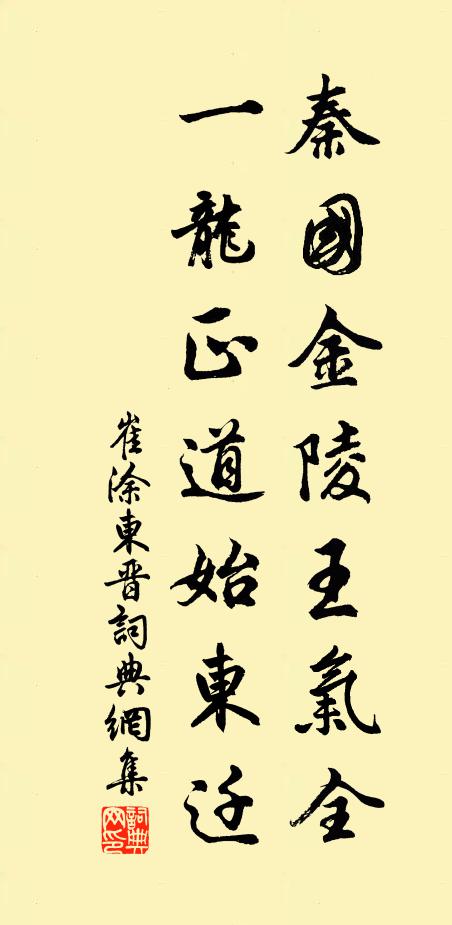 秦國金陵王氣全
一龍正道始東迁
崔涂東晋詞典網集
詞典网印